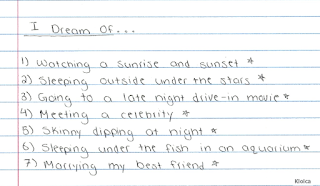 I Dream Of...
1) Watching a sunrise and sunset *
2) Sleeping outside under the stars *
3) Going to a late night drive-in movie *
4) Meeting a celebrity *
5) Skinny dipping at night *
6) Sleeping under the fish in an aquarium *
7) Marrying my best friend *
Kloica